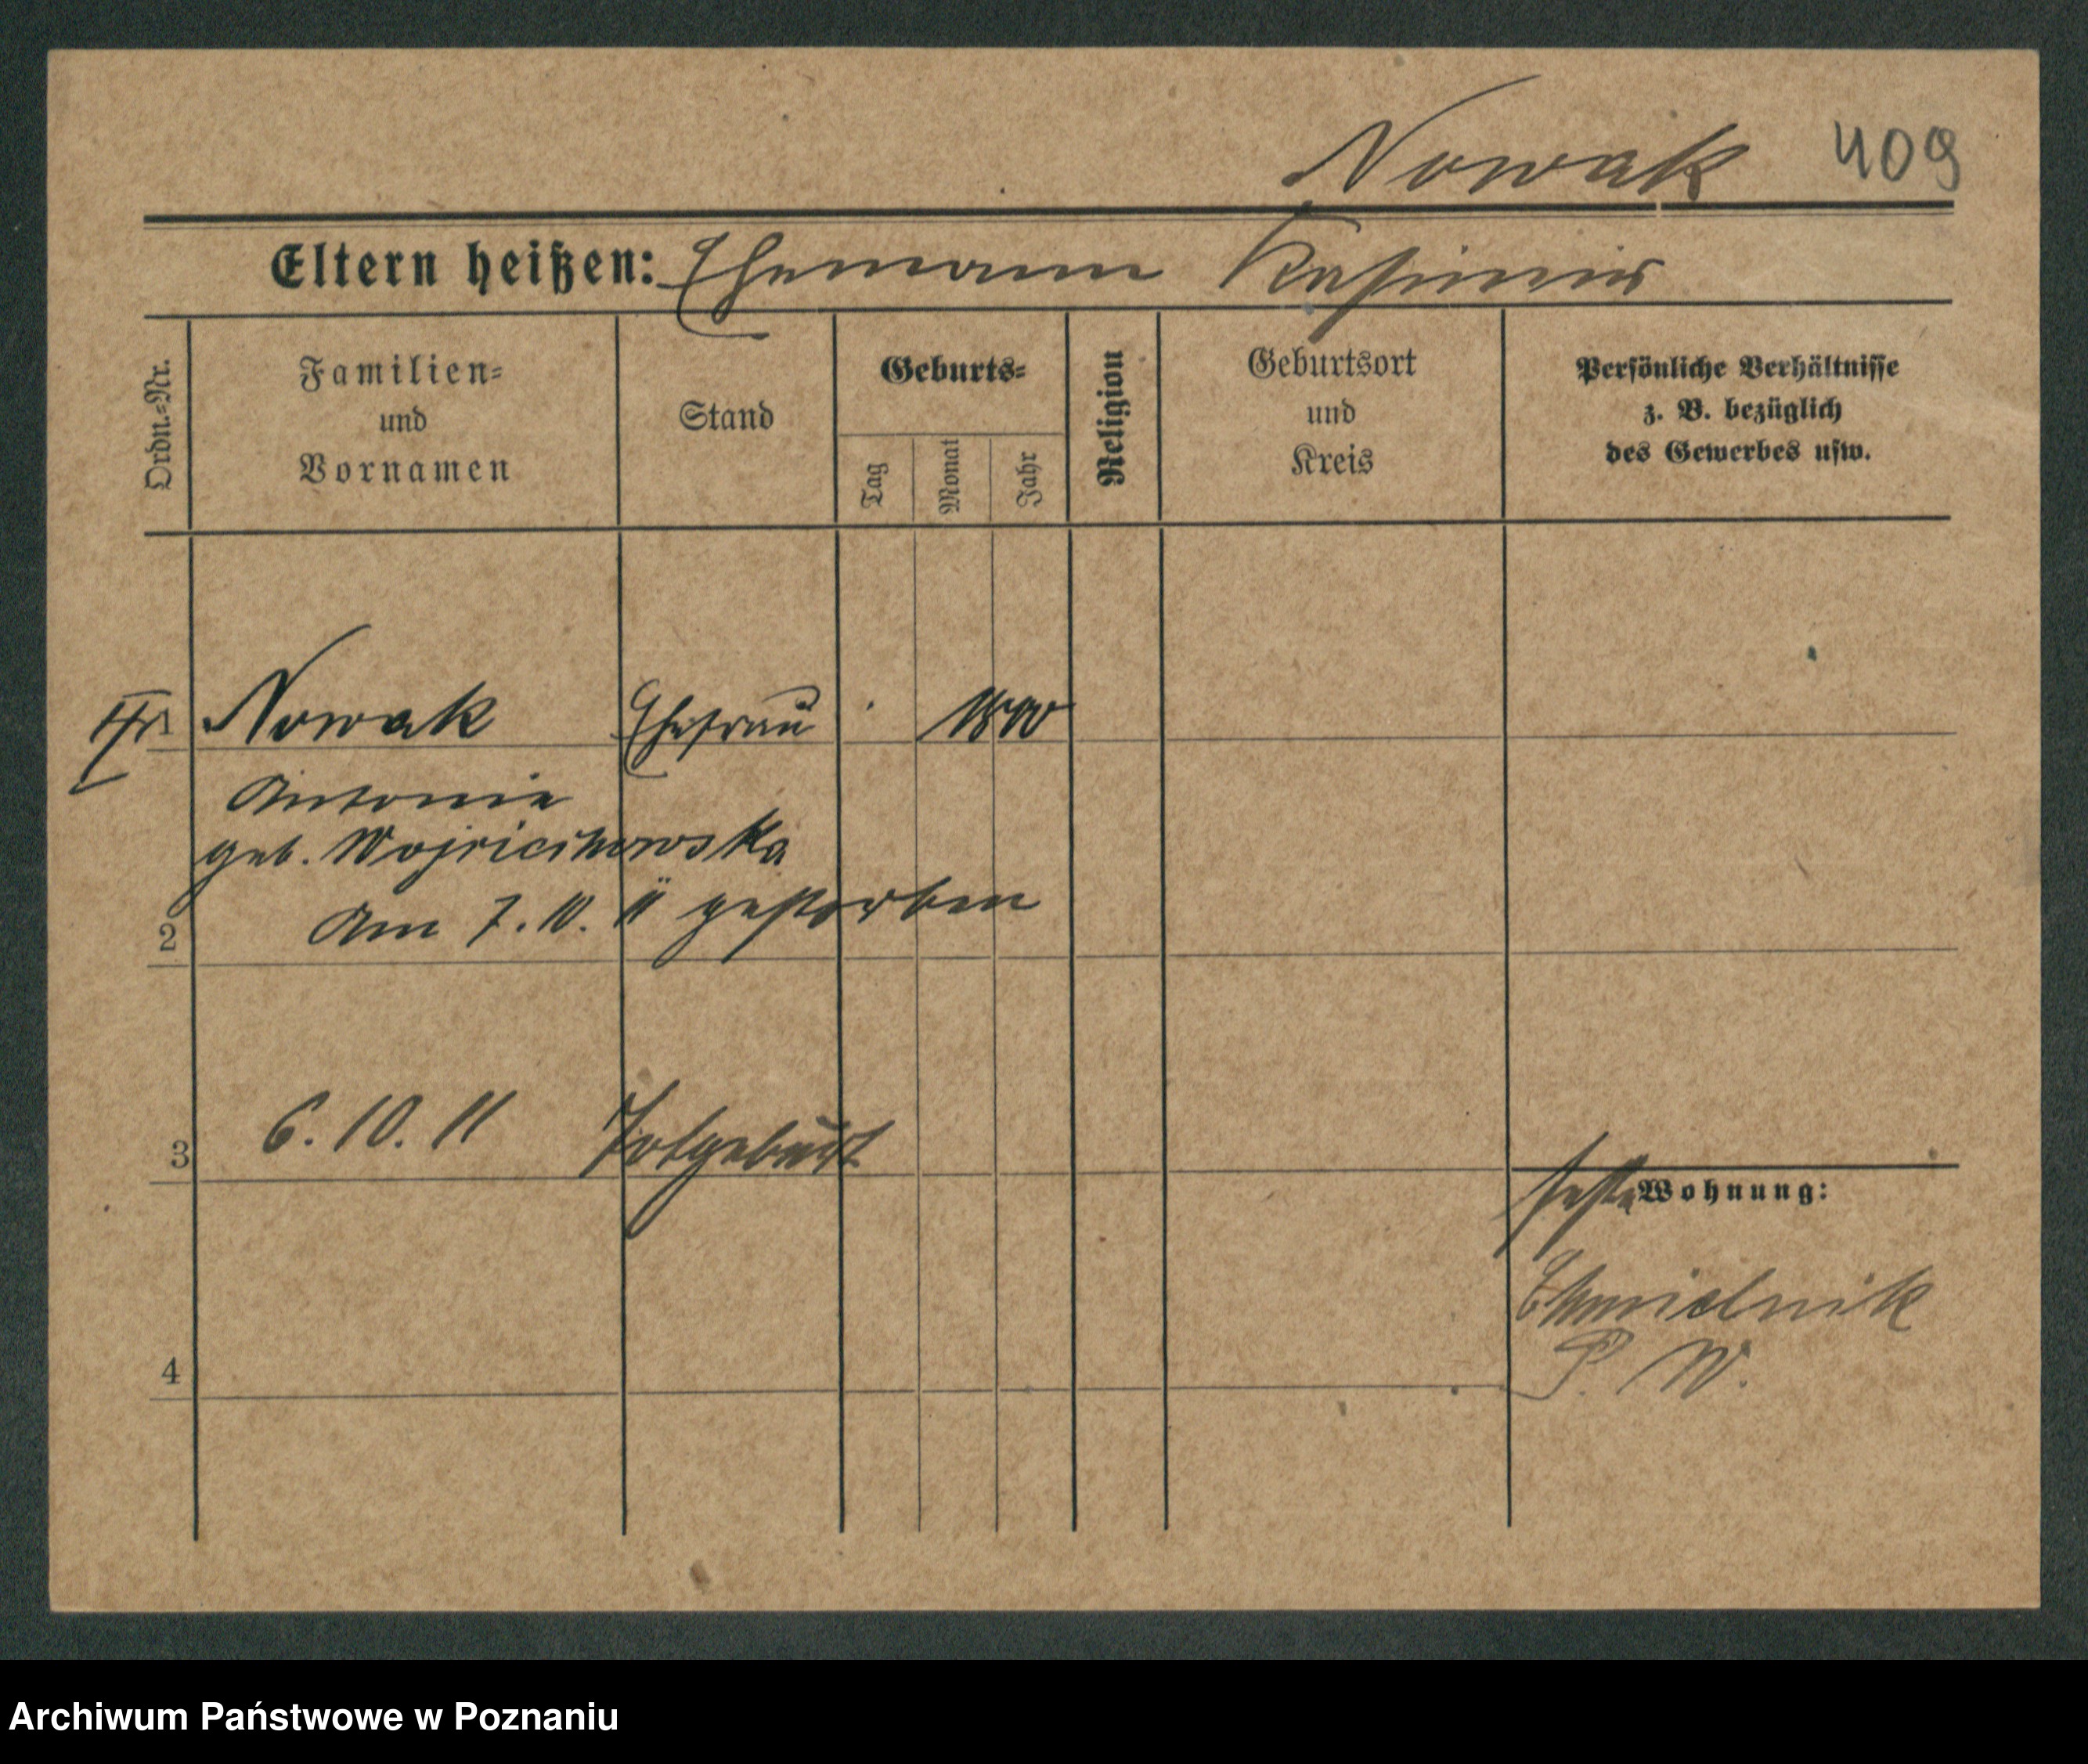 Nowak 409
Eltern heißen: Ehemann Kasimir
Ordn.=Nr.
Familien=
und
Vornamen
Stand
Geburts=
Tag
Monat
Jahr
Religion
Geburtsort
und
Kreis
Persönliche Verhältnisse
z. B. bezüglich
des Gewerbes usw.
1 Nowak Ehefrau
Antonie
geb.
2 Am 7. 10. 11 gestorben
3 6. 10. 11 Totgeburt
feste Wohnung:
Chmielnik
P. W.
4
Archiwum Państwowe w Poznaniu